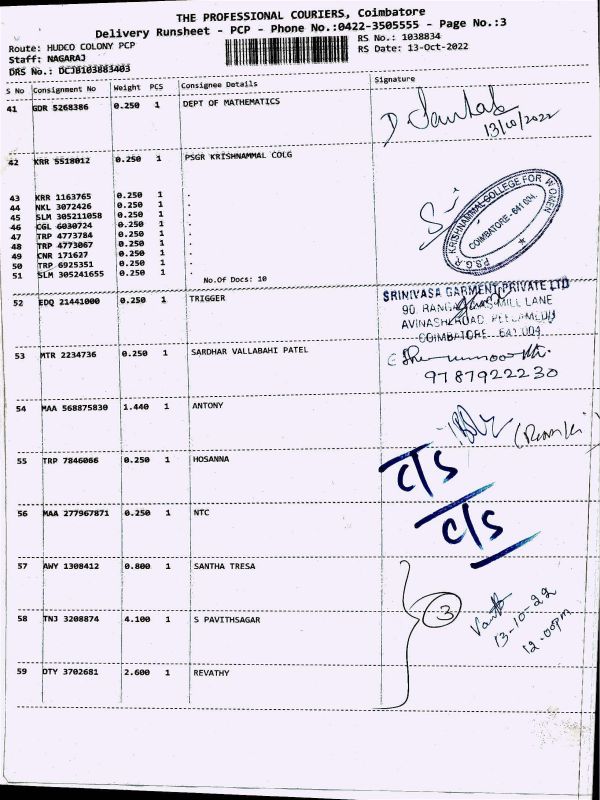 THE PROFESSIONAL COURIERS, Coimbatore
Delivery Runsheet - PCP - Phone No.:0422-3505555 - Page No.:3
Route: HUDCO COLONY PCP
RS No.: 1038834
Staff: NAGARAJ
RS Date: 13-Oct-2022
DRS No.: DCJB103883403
S No Consignment No Weight PCS Consignee Details Signature
41 GDR 5268386 0.250 1 DEPT OF MATHEMATICS
13/10/2022
42 KRR 5518012 0.250 1 PSGR KRISHNAMMAL COLG
P.S.G.R. KRISHNAMMAL COLLEGE FOR WOMEN
COIMBATORE - 641 004.
43 KRR 1163765 0.250 1 .
44 NKL 3072426 0.250 1 .
45 SLM 305211058 0.250 1 .
46 CGL 6030724 0.250 1 .
47 TRP 4773784 0.250 1 .
48 TRP 4773067 0.250 1 .
49 CNR 171627 0.250 1 .
50 TRP 6925351 0.250 1 .
51 SLM 305241655 0.250 1 .
No.Of Docs: 10
52 EDQ 21441000 0.250 1 TRIGGER
SRINIVASA GARMENT PRIVATE LTD
90, MILL LANE
AVINASHI ROAD, PEELAMEDU
COIMBATORE - 641 004.
53 MTR 2234736 0.250 1 SARDHAR VALLABAHI PATEL
9787922230
54 MAA 568875830 1.440 1 ANTONY
55 TRP 7846066 0.250 1 HOSANNA
C/S
56 MAA 277967871 0.250 1 NTC
C/S
57 AWY 1308412 0.800 1 SANTHA TRESA
58 TNJ 3208874 4.100 1 S PAVITHSAGAR
3
13-10-22
12.00pm
59 OTY 3702681 2.600 1 REVATHY